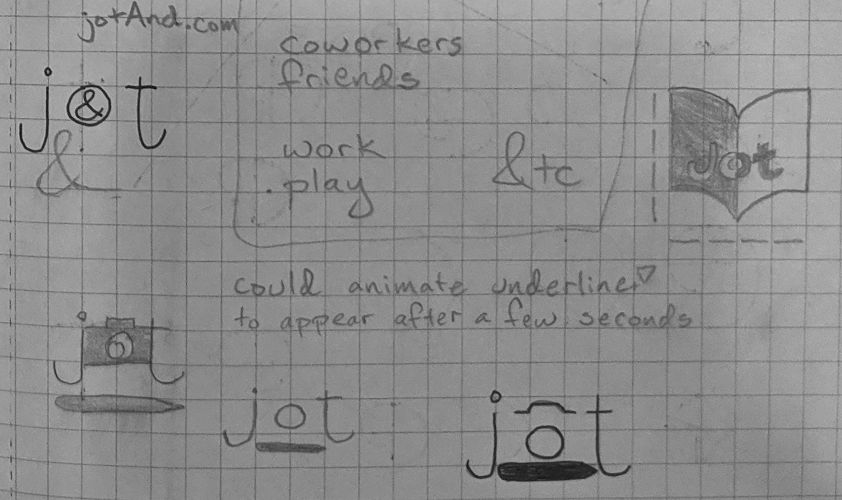 jotAnd.com
coworkers
friends
j&t
&
work
play
&tc
Jot
could animate underline
to appear after a few seconds
jot
jot
jot